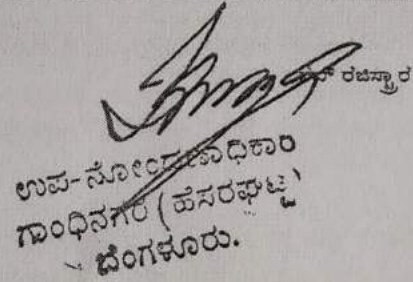 ರಜಿಸ್ಟ್ರಾರ
ಉಪ-ನೋಂದಣಾಧಿಕಾರಿ
ಗಾಂಧಿನಗರ (ಹೆಸರಘಟ್ಟ)
ಬೆಂಗಳೂರು.